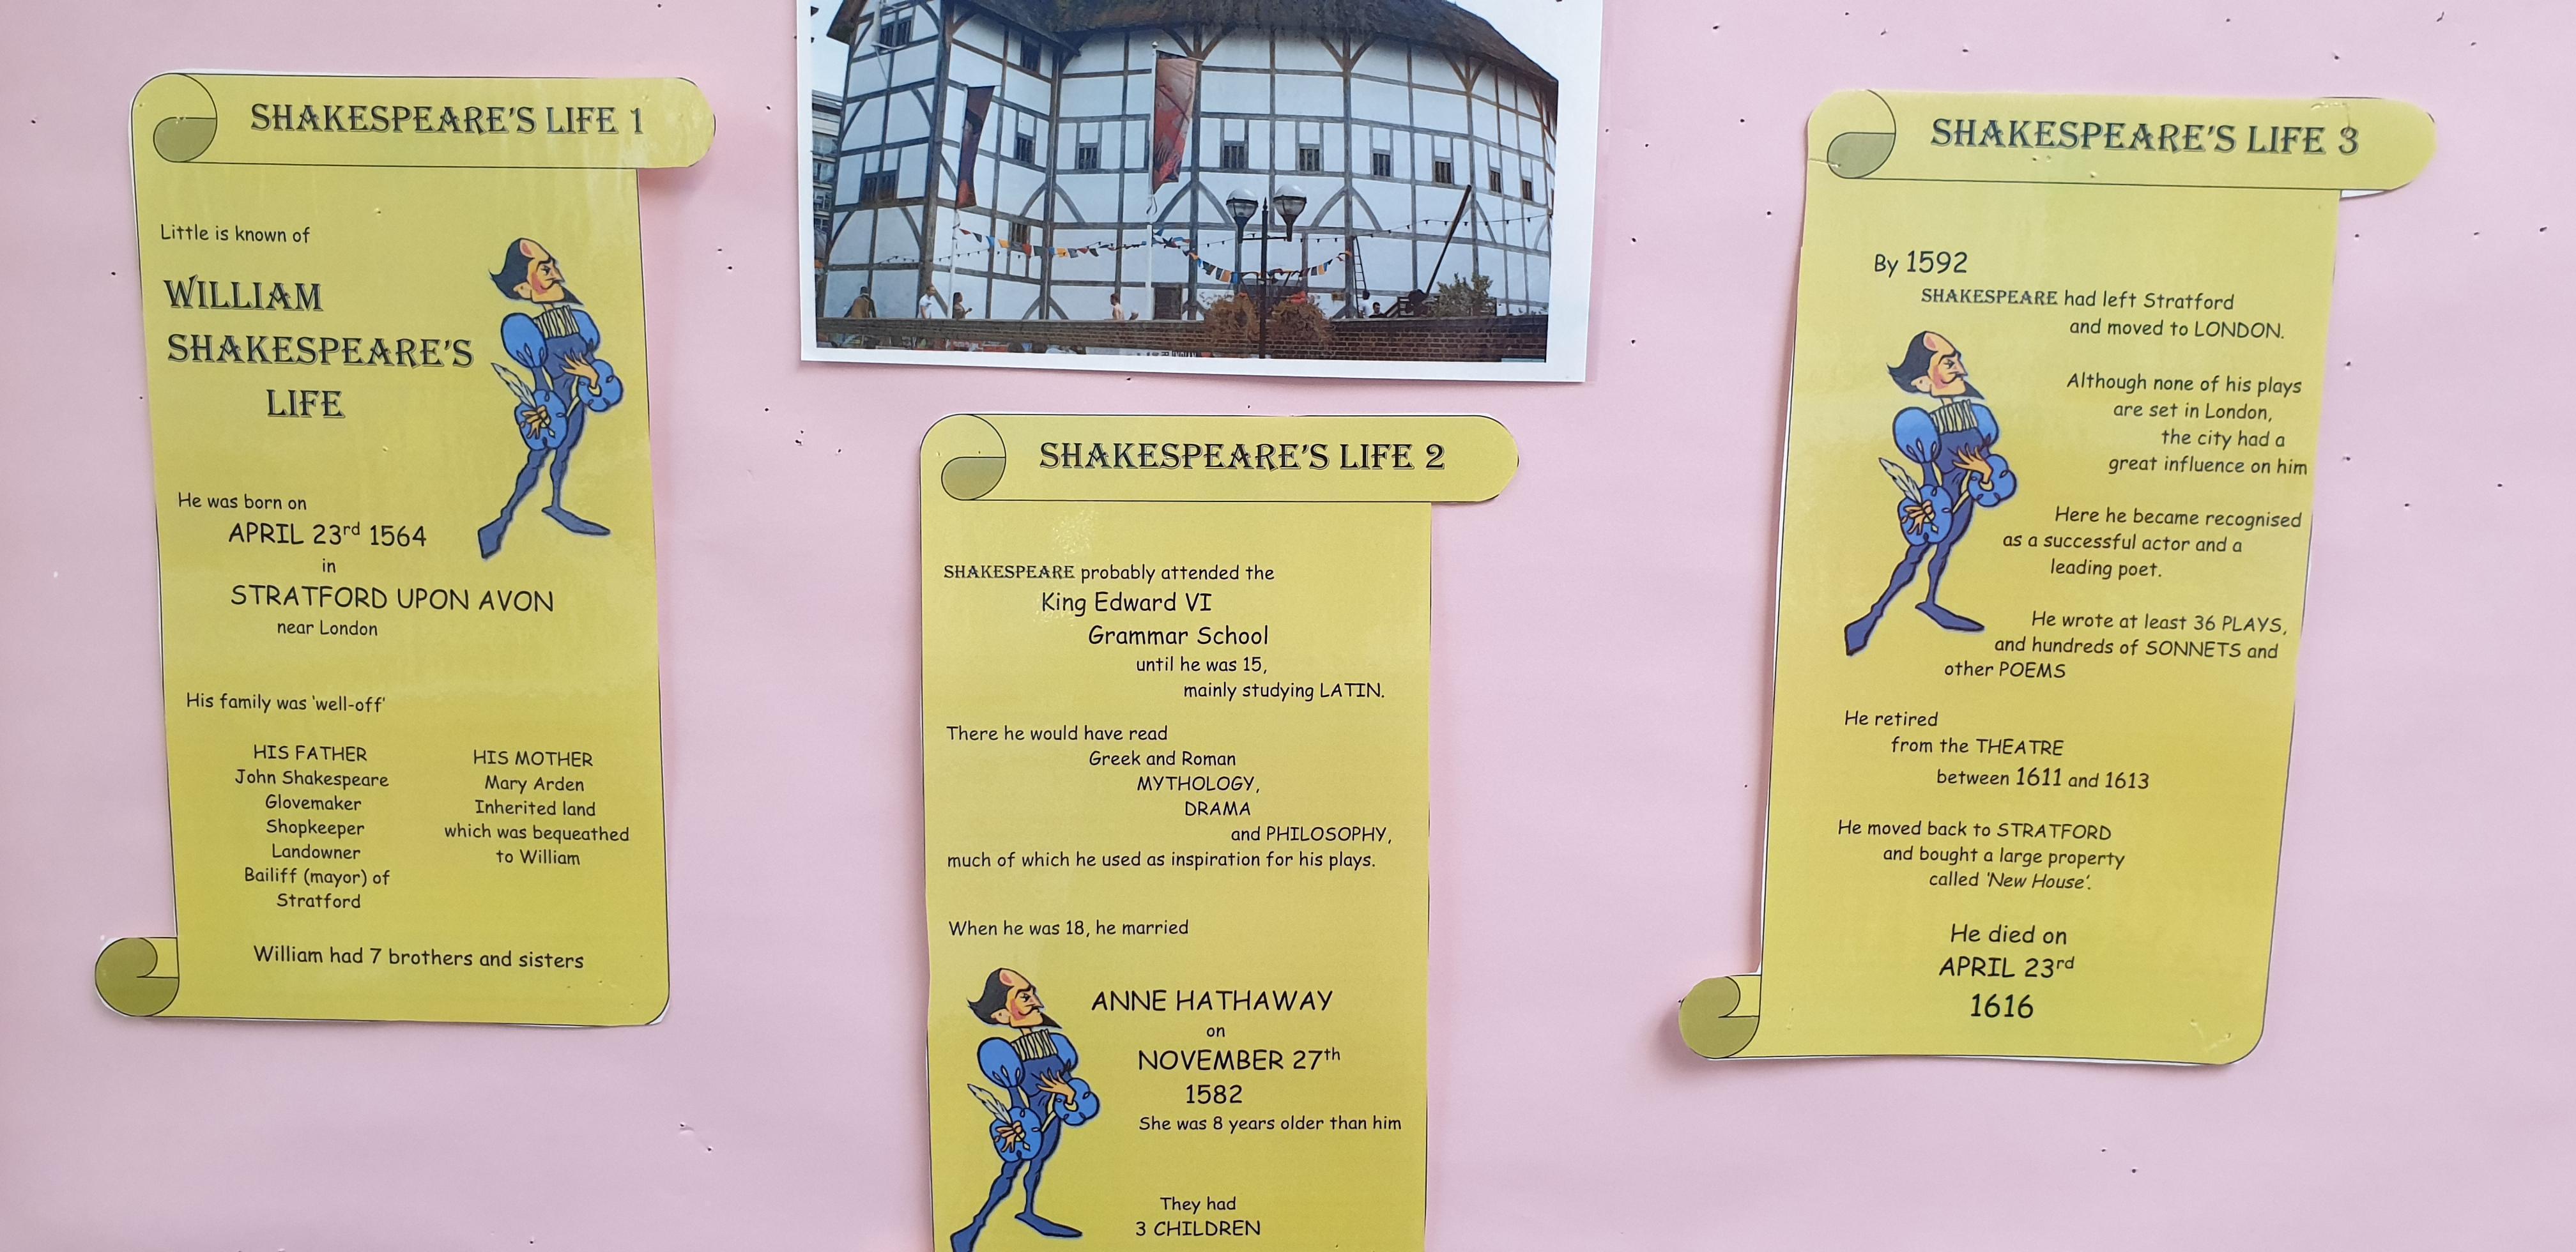 SHAKESPEARE'S LIFE 1
Little is known of
WILLIAM
SHAKESPEARE'S
LIFE
He was born on
APRIL 23rd 1564
in
STRATFORD UPON AVON
near London
His family was 'well-off'
HIS FATHER
John Shakespeare
Glovemaker
Shopkeeper
Landowner
Bailiff (mayor) of
Stratford
HIS MOTHER
Mary Arden
Inherited land
which was bequeathed
to William
William had 7 brothers and sisters
SHAKESPEARE'S LIFE 2
SHAKESPEARE probably attended the
King Edward VI
Grammar School
until he was 15,
mainly studying LATIN.
There he would have read
Greek and Roman
MYTHOLOGY,
DRAMA
and PHILOSOPHY,
much of which he used as inspiration for his plays.
When he was 18, he married
ANNE HATHAWAY
on
NOVEMBER 27th
1582
She was 8 years older than him
They had
3 CHILDREN
SHAKESPEARE'S LIFE 3
By 1592
SHAKESPEARE had left Stratford
and moved to LONDON.
Although none of his plays
are set in London,
the city had a
great influence on him
Here he became recognised
as a successful actor and a
leading poet.
He wrote at least 36 PLAYS,
and hundreds of SONNETS and
other POEMS
He retired
from the THEATRE
between 1611 and 1613
He moved back to STRATFORD
and bought a large property
called 'New House'.
He died on
APRIL 23rd
1616